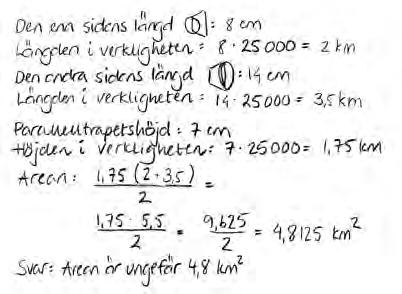 Den ena sidens längd : 8 cm
Längden i verkligheten = 8 · 25000 = 2 km
Den andra sidens längd : 14 cm
Längden i verkligheten = 14 · 25000 = 3,5 km
Höjd : 7 cm
Höjden i verkligheten: 7 · 25000 = 1,75 km
Arean: 1,75 (2+3,5) / 2 =
1,75 · 5,5 / 2 = 9,625 / 2 = 4,8125 km²
Svar: Arean är ungefär 4,8 km²